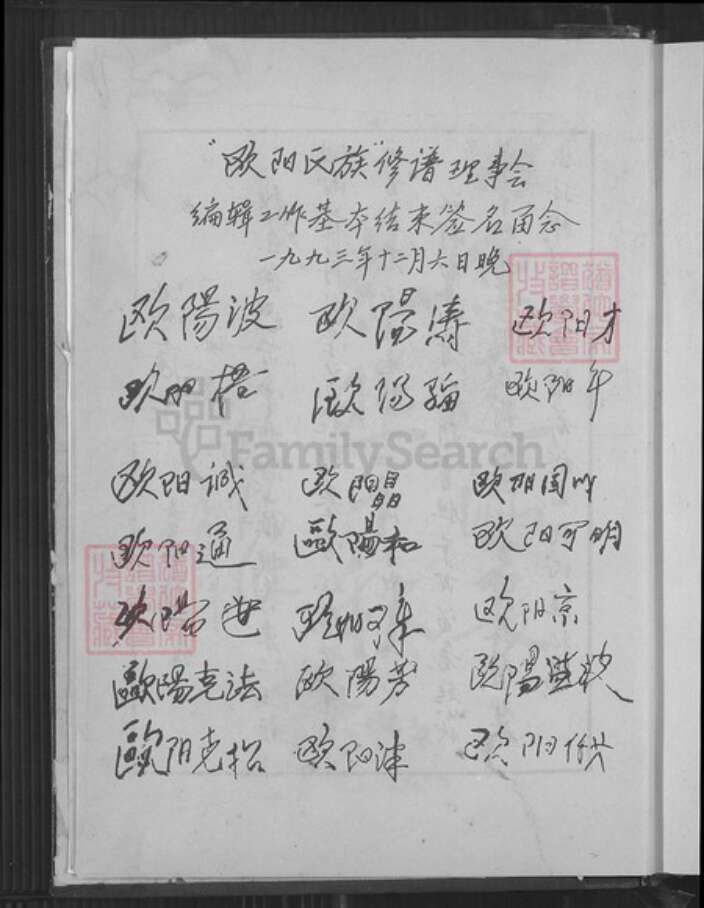 "欧阳氏族"修谱理事会
编辑工作基本结束签名留念
一九九三年十二月六日晚
欧陽波 欧陽涛 欧阳才
欧阳 欧阳 欧阳年
FamilySearch
欧阳诚 欧阳晶 欧阳国
欧阳通 歐陽和 欧阳可明
欧阳 欧阳 欧阳京
歐陽克法 欧陽芳 欧陽
歐阳克松 欧阳津 欧阳